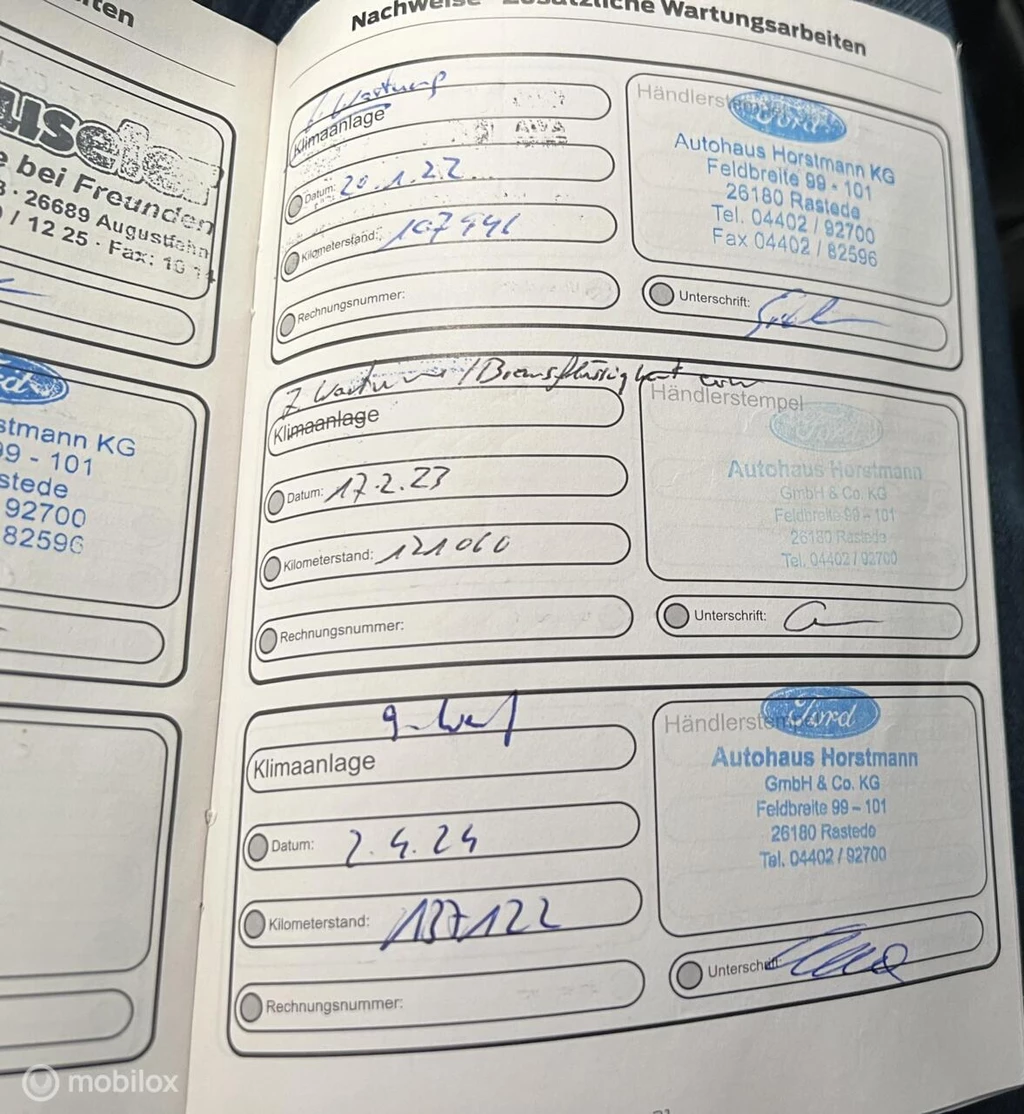 ten
useler
bei Freunden
26689 Augustfehn
/ 12 25 · Fax:
stmann KG
99 - 101
stede
92700
82596
Nachweise Zusätzliche Wartungsarbeiten
Wartung
Klimaanlage
Datum: 20.1.22
Kilometerstand: 107941
Rechnungsnummer:
Händlerstempel
Ford
Autohaus Horstmann KG
Feldbreite 99 - 101
26180 Rastede
Tel. 04402 / 92700
Fax 04402 / 82596
Unterschrift:
Wartung / Bremsflüssigkeit
Klimaanlage
Datum: 17.2.23
Kilometerstand: 121060
Rechnungsnummer:
Händlerstempel
Ford
Autohaus Horstmann
GmbH & Co. KG
Feldbreite 99 - 101
26180 Rastede
Tel. 04402 / 92700
Unterschrift:
Klimaanlage
Datum: 2.4.24
Kilometerstand: 137122
Rechnungsnummer:
Händlerstempel
Ford
Autohaus Horstmann
GmbH & Co. KG
Feldbreite 99 – 101
26180 Rastede
Tel. 04402 / 92700
Unterschrift:
mobilox